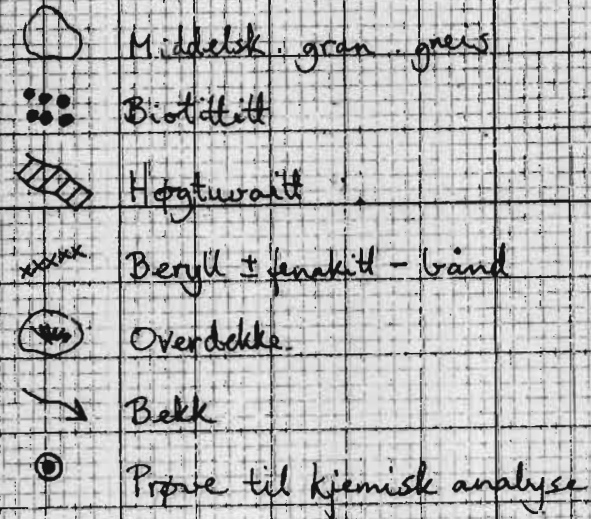 Middelsk. gran. gneis
Biotittitt
Høgtuvaitt
Beryll ± fenakitt - bånd
Overdekke.
Bekk
Prøve til kjemisk analyse